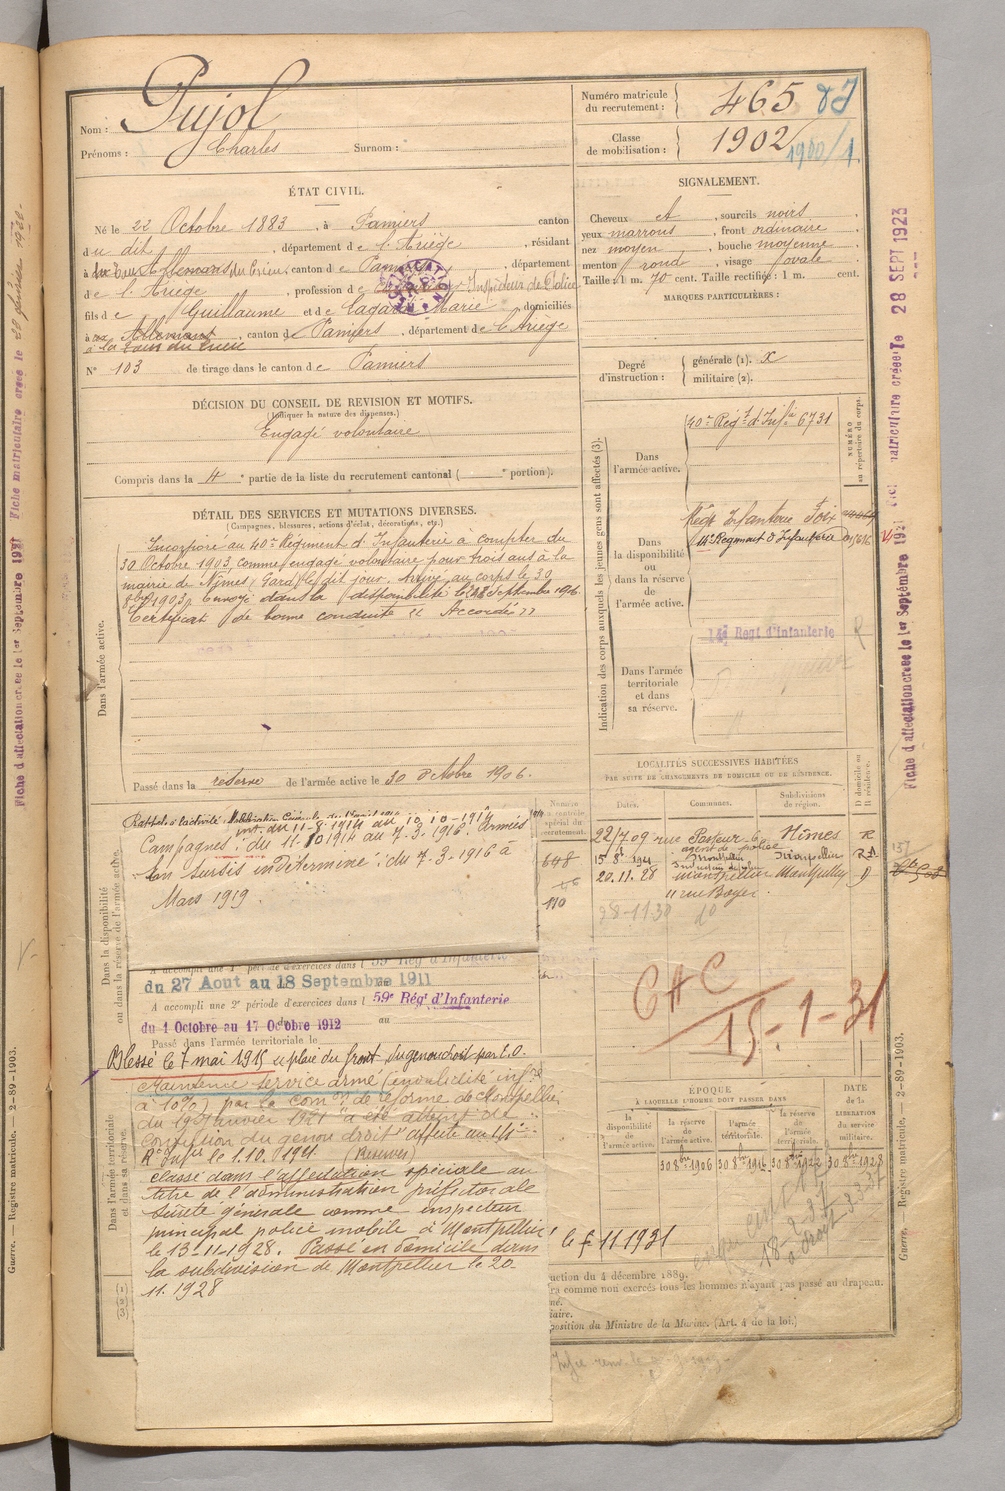 Nom : Pujol
Prénoms : Charles Surnom :
Numéro matricule du recrutement : 465
Classe de mobilisation : 1902
1900/1
ÉTAT CIVIL.
Né le 22 Octobre 1883, à Pamiers canton
du dit, département de l'Ariège, résidant
à canton de Pamiers, département
de l'Ariège, profession de Inspecteur de Police
fils de Guillaume et de Marie domiciliés
à Allemans, canton de Pamiers, département de l'Ariège
à la Tour du Crieu
N° 103 de tirage dans le canton de Pamiers
SIGNALEMENT.
Cheveux et, sourcils noirs
yeux marrons, front ordinaire
nez moyen, bouche moyenne
menton rond, visage ovale
Taille : 1 m. 70 cent. Taille rectifiée : 1 m. cent.
MARQUES PARTICULIÈRES :
Degré d'instruction : générale (1). X
militaire (2).
DÉCISION DU CONSEIL DE REVISION ET MOTIFS.
(Indiquer la nature des dispenses.)
Engagé volontaire
Compris dans la 4e partie de la liste du recrutement cantonal ( e portion).
DÉTAIL DES SERVICES ET MUTATIONS DIVERSES.
(Campagnes, blessures, actions d'éclat, décorations, etc.)
Dans l'armée active.
Incorporé au 40e Régiment d'Infanterie à compter du
30 Octobre 1903, comme engagé volontaire pour trois ans à la
mairie de Nîmes (Gard) le dit jour. Arrivé au corps le 30
8bre 1903. Envoyé dans la disponibilité le 28 septembre 1906
Certificat de bonne conduite "Accordé"
Passé dans la réserve de l'armée active le 30 octobre 1906.
Indication des corps auxquels les jeunes gens sont affectés (3).
NUMÉRO au répertoire du corps.
Dans l'armée active.
40e Régt d'Infie 6731
Dans la disponibilité ou dans la réserve de l'armée active.
Régt Infanterie Foix
14e Régiment d'Infanterie
14e Regt d'Infanterie
Dans l'armée territoriale et dans sa réserve.
LOCALITÉS SUCCESSIVES HABITÉES
PAR SUITE DE CHANGEMENTS DE DOMICILE OU DE RÉSIDENCE.
Dates. Communes. Subdivisions de région. D domicile ou R résidence.
22/7.09 rue Pasteur 6 Nîmes R
agent de police
15 8 1911 Montpellier Montpellier
20.11.28 Montpellier Montpellier D
11 rue Boyer
28-11 30
Numéro au contrôle spécial du recrutement.
648
110
Dans la disponibilité ou dans la réserve de l'armée active.
Rappelé à l'activité Mobilisation Générale
int. du 11-8-1914 au 10-10-1914
Campagnes : du 11.10 1914 au 7-3-1916. Armées
En Sursis indéterminé : du 7-3-1916 à
Mars 1919.
A accompli une 1e période d'exercices dans l 59e Rég d'Infanterie
du 27 Aout au 18 Septembre 1911
A accompli une 2e période d'exercices dans l 59e Régt d'Infanterie
du 1 Octobre au 17 Octobre 1912 au
Passé dans l'armée territoriale le
Dans l'armée territoriale et dans sa réserve.
Blessé le 7 mai 1915 plaie du front, du genou droit par E.O.
Maintenu service armé (invalidité infre
à 10%) par la Comon de réforme de Montpellier
du 19 Janvier 1921 "a été atteint de
Contusion du genou droit" affecté au 14e
Rt Infie le 1.10.1921 (Réserves)
classé dans l'affectation spéciale au
titre de l'administration préfectorale
Sûreté générale comme inspecteur
principal police mobile à Montpellier
le 13-11-1928. Passé en domicile dans
la subdivision de Montpellier le 20
11.1928
le 11 1931
CAC
15-1-31
ÉPOQUE
À LAQUELLE L'HOMME DOIT PASSER DANS
la disponibilité de l'armée active.
la réserve de l'armée active.
l'armée territoriale.
la réserve de l'armée territoriale.
DATE de la LIBÉRATION du service militaire.
30 8bre 1906 30 8bre 1916 30 8bre 1922 30 8bre 1928
18-2-37
uction du 4 décembre 1889.
ra comme non exercés tous les hommes n'ayant pas passé au drapeau.
position du Ministre de la Marine. (Art. 4 de la loi.)
Guerre. — Registre matricule. — 2-89-1903.
Guerre. — Registre matricule. — 2-89-1903.
Fiche d'affectation créée le 1er Septembre 1921
Fiche matriculaire créée le
Fiche d'affectation créée le 1er Septembre 192
matriculaire créée le 28 SEPT 1923